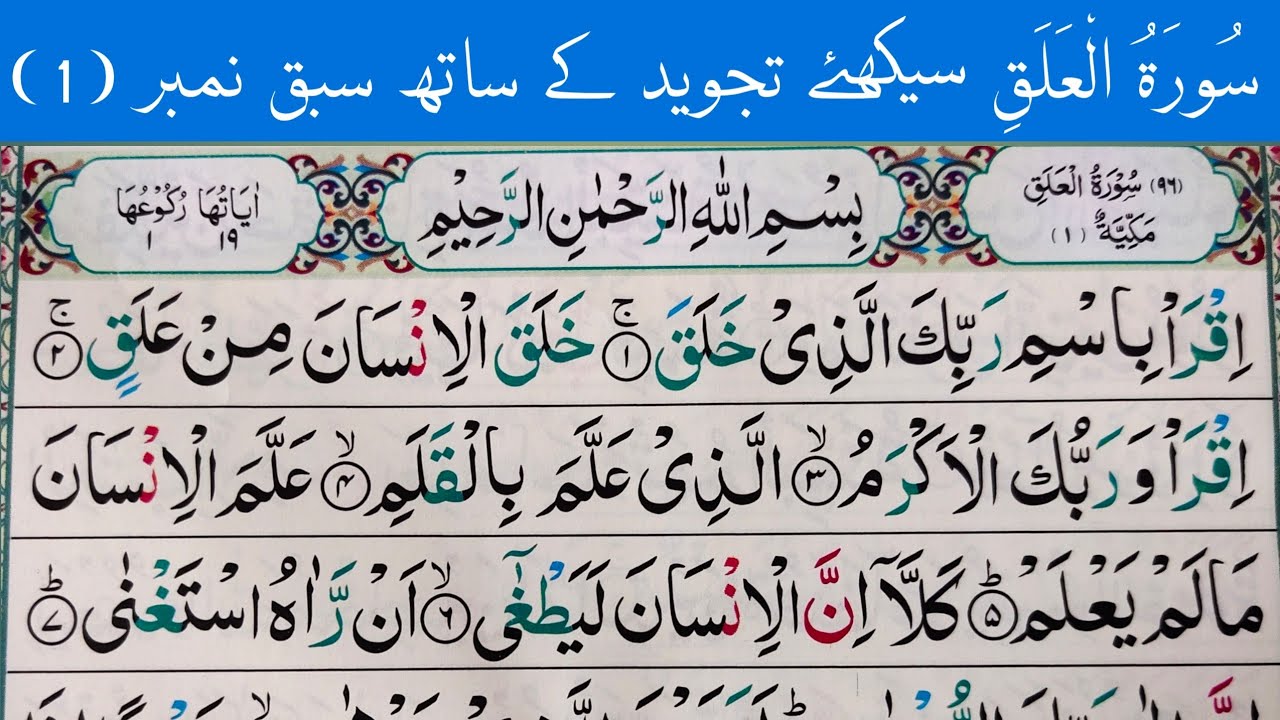 سُورَةُ الْعَلَقِ سیکھئے تجوید کے ساتھ سبق نمبر (1)
(٩٦) سُوْرَةُ الْعَلَقِ
مَكِّيَّةٌ (١)
بِسْمِ اللّٰهِ الرَّحْمٰنِ الرَّحِيْمِ
اٰيَاتُهَا رُكُوْعُهَا
١٩ ١
اِقْرَاْ بِاسْمِ رَبِّكَ الَّذِىْ خَلَقَ ۚ﴿١﴾ خَلَقَ الْاِنْسَانَ مِنْ عَلَقٍ ۚ﴿٢﴾
اِقْرَاْ وَرَبُّكَ الْاَكْرَمُ ۙ﴿٣﴾ الَّذِىْ عَلَّمَ بِالْقَلَمِ ۙ﴿۴﴾ عَلَّمَ الْاِنْسَانَ
مَا لَمْ يَعْلَمْ ؕ﴿۵﴾ كَلَّاۤ اِنَّ الْاِنْسَانَ لَيَطْغٰٓى ۙ﴿۶﴾ اَنْ رَّاٰهُ اسْتَغْنٰى ؕ﴿۷﴾